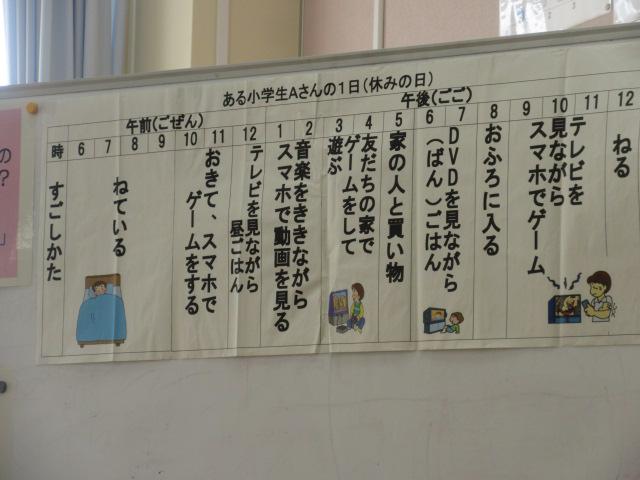 ある小学生Aさんの1日(休みの日)
午前(ごぜん)
午後(ごご)
時 6 7 8 9 10 11 12 1 2 3 4 5 6 7 8 9 10 11 12
すごしかた
ねている
おきて、スマホで
ゲームをする
テレビを見ながら
昼ごはん
音楽をききながら
スマホで動画を見る
友だちの家で
ゲームをして
遊ぶ
家の人と買い物
DVDを見ながら
(ばん)ごはん
おふろに入る
テレビを
見ながら
スマホでゲーム
ねる
の
?
」